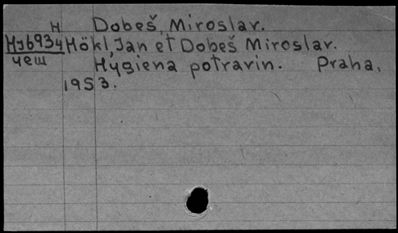 н Dobeš, Miroslav.
Нз6934 Hökl Jan et Dobeš Miroslav.
чеш Hygiena potravin. Praha,
1953.